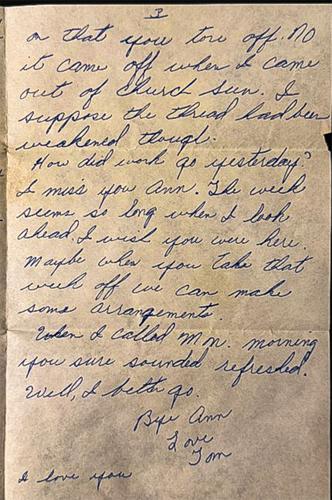 3
on that you tore off. No
it came off when I came
out of church Sun. I
suppose the thread had been
weakened though.
How did work go yesterday?
I miss you Ann. The week
seems so long when I look
ahead. I wish you were here.
Maybe when you take that
week off we can make
some arrangements.
When I called Mon. morning
you sure sounded refreshed.
Well, I better go.
Bye Ann
Love
Tom
I love you